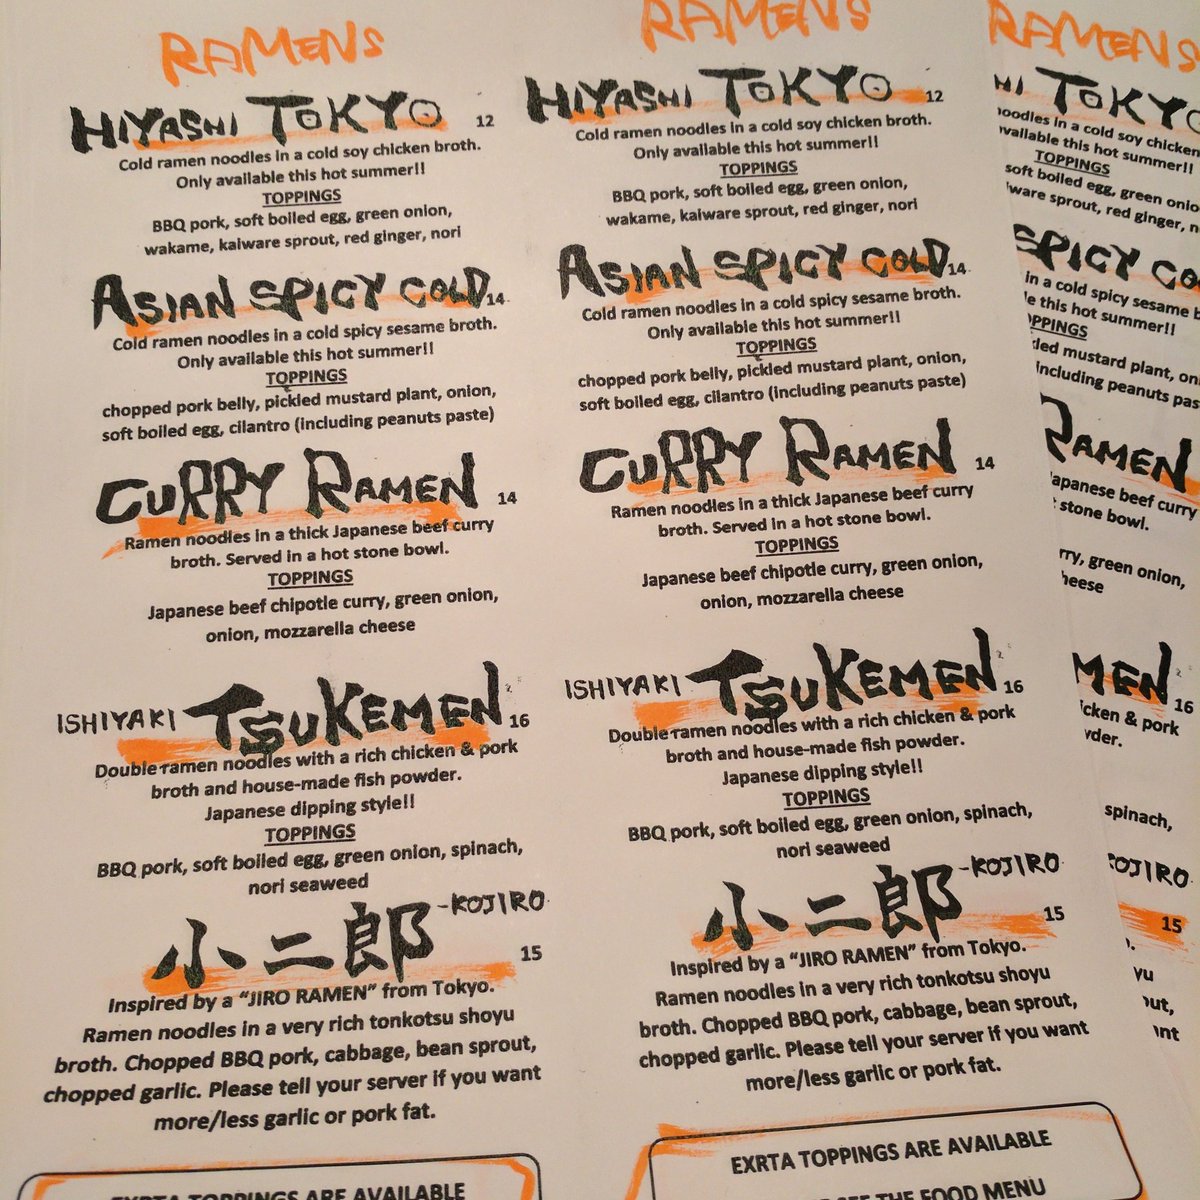 RAMENS
HIYASHI TOKYO 12
Cold ramen noodles in a cold soy chicken broth.
Only available this hot summer!!
TOPPINGS
BBQ pork, soft boiled egg, green onion,
wakame, kaiware sprout, red ginger, nori
ASIAN SPICY COLD 14
Cold ramen noodles in a cold spicy sesame broth.
Only available this hot summer!!
TOPPINGS
chopped pork belly, pickled mustard plant, onion,
soft boiled egg, cilantro (including peanuts paste)
CURRY RAMEN 14
Ramen noodles in a thick Japanese beef curry
broth. Served in a hot stone bowl.
TOPPINGS
Japanese beef chipotle curry, green onion,
onion, mozzarella cheese
ISHIYAKI TSUKEMEN 16
Double ramen noodles with a rich chicken & pork
broth and house-made fish powder.
Japanese dipping style!!
TOPPINGS
BBQ pork, soft boiled egg, green onion, spinach,
nori seaweed
小二郎 -KOJIRO 15
Inspired by a "JIRO RAMEN" from Tokyo.
Ramen noodles in a very rich tonkotsu shoyu
broth. Chopped BBQ pork, cabbage, bean sprout,
chopped garlic. Please tell your server if you want
more/less garlic or pork fat.
EXRTA TOPPINGS ARE AVAILABLE
RAMENS
HIYASHI TOKYO 12
Cold ramen noodles in a cold soy chicken broth.
Only available this hot summer!!
TOPPINGS
BBQ pork, soft boiled egg, green onion,
wakame, kaiware sprout, red ginger, nori
ASIAN SPICY COLD 14
Cold ramen noodles in a cold spicy sesame broth.
Only available this hot summer!!
TOPPINGS
chopped pork belly, pickled mustard plant, onion,
soft boiled egg, cilantro (including peanuts paste)
CURRY RAMEN 14
Ramen noodles in a thick Japanese beef curry
broth. Served in a hot stone bowl.
TOPPINGS
Japanese beef chipotle curry, green onion,
onion, mozzarella cheese
ISHIYAKI TSUKEMEN 16
Double ramen noodles with a rich chicken & pork
broth and house-made fish powder.
Japanese dipping style!!
TOPPINGS
BBQ pork, soft boiled egg, green onion, spinach,
nori seaweed
小二郎 -KOJIRO 15
Inspired by a "JIRO RAMEN" from Tokyo.
Ramen noodles in a very rich tonkotsu shoyu
broth. Chopped BBQ pork, cabbage, bean sprout,
chopped garlic. Please tell your server if you want
more/less garlic or pork fat.
EXRTA TOPPINGS ARE AVAILABLE
SEE THE FOOD MENU
RAMENS
TOKYO
noodles in a cold soy chicken
available this hot summer!!
TOPPINGS
soft boiled egg, green
sprout, red ginger,
SPICY
in a cold spicy sesame
this hot summer!!
TOPPINGS
mustard plant,
including peanuts
RAMEN
Japanese beef curry
stone bowl.
green onion,
cheese
16
& pork
spinach,
KOJIRO
15